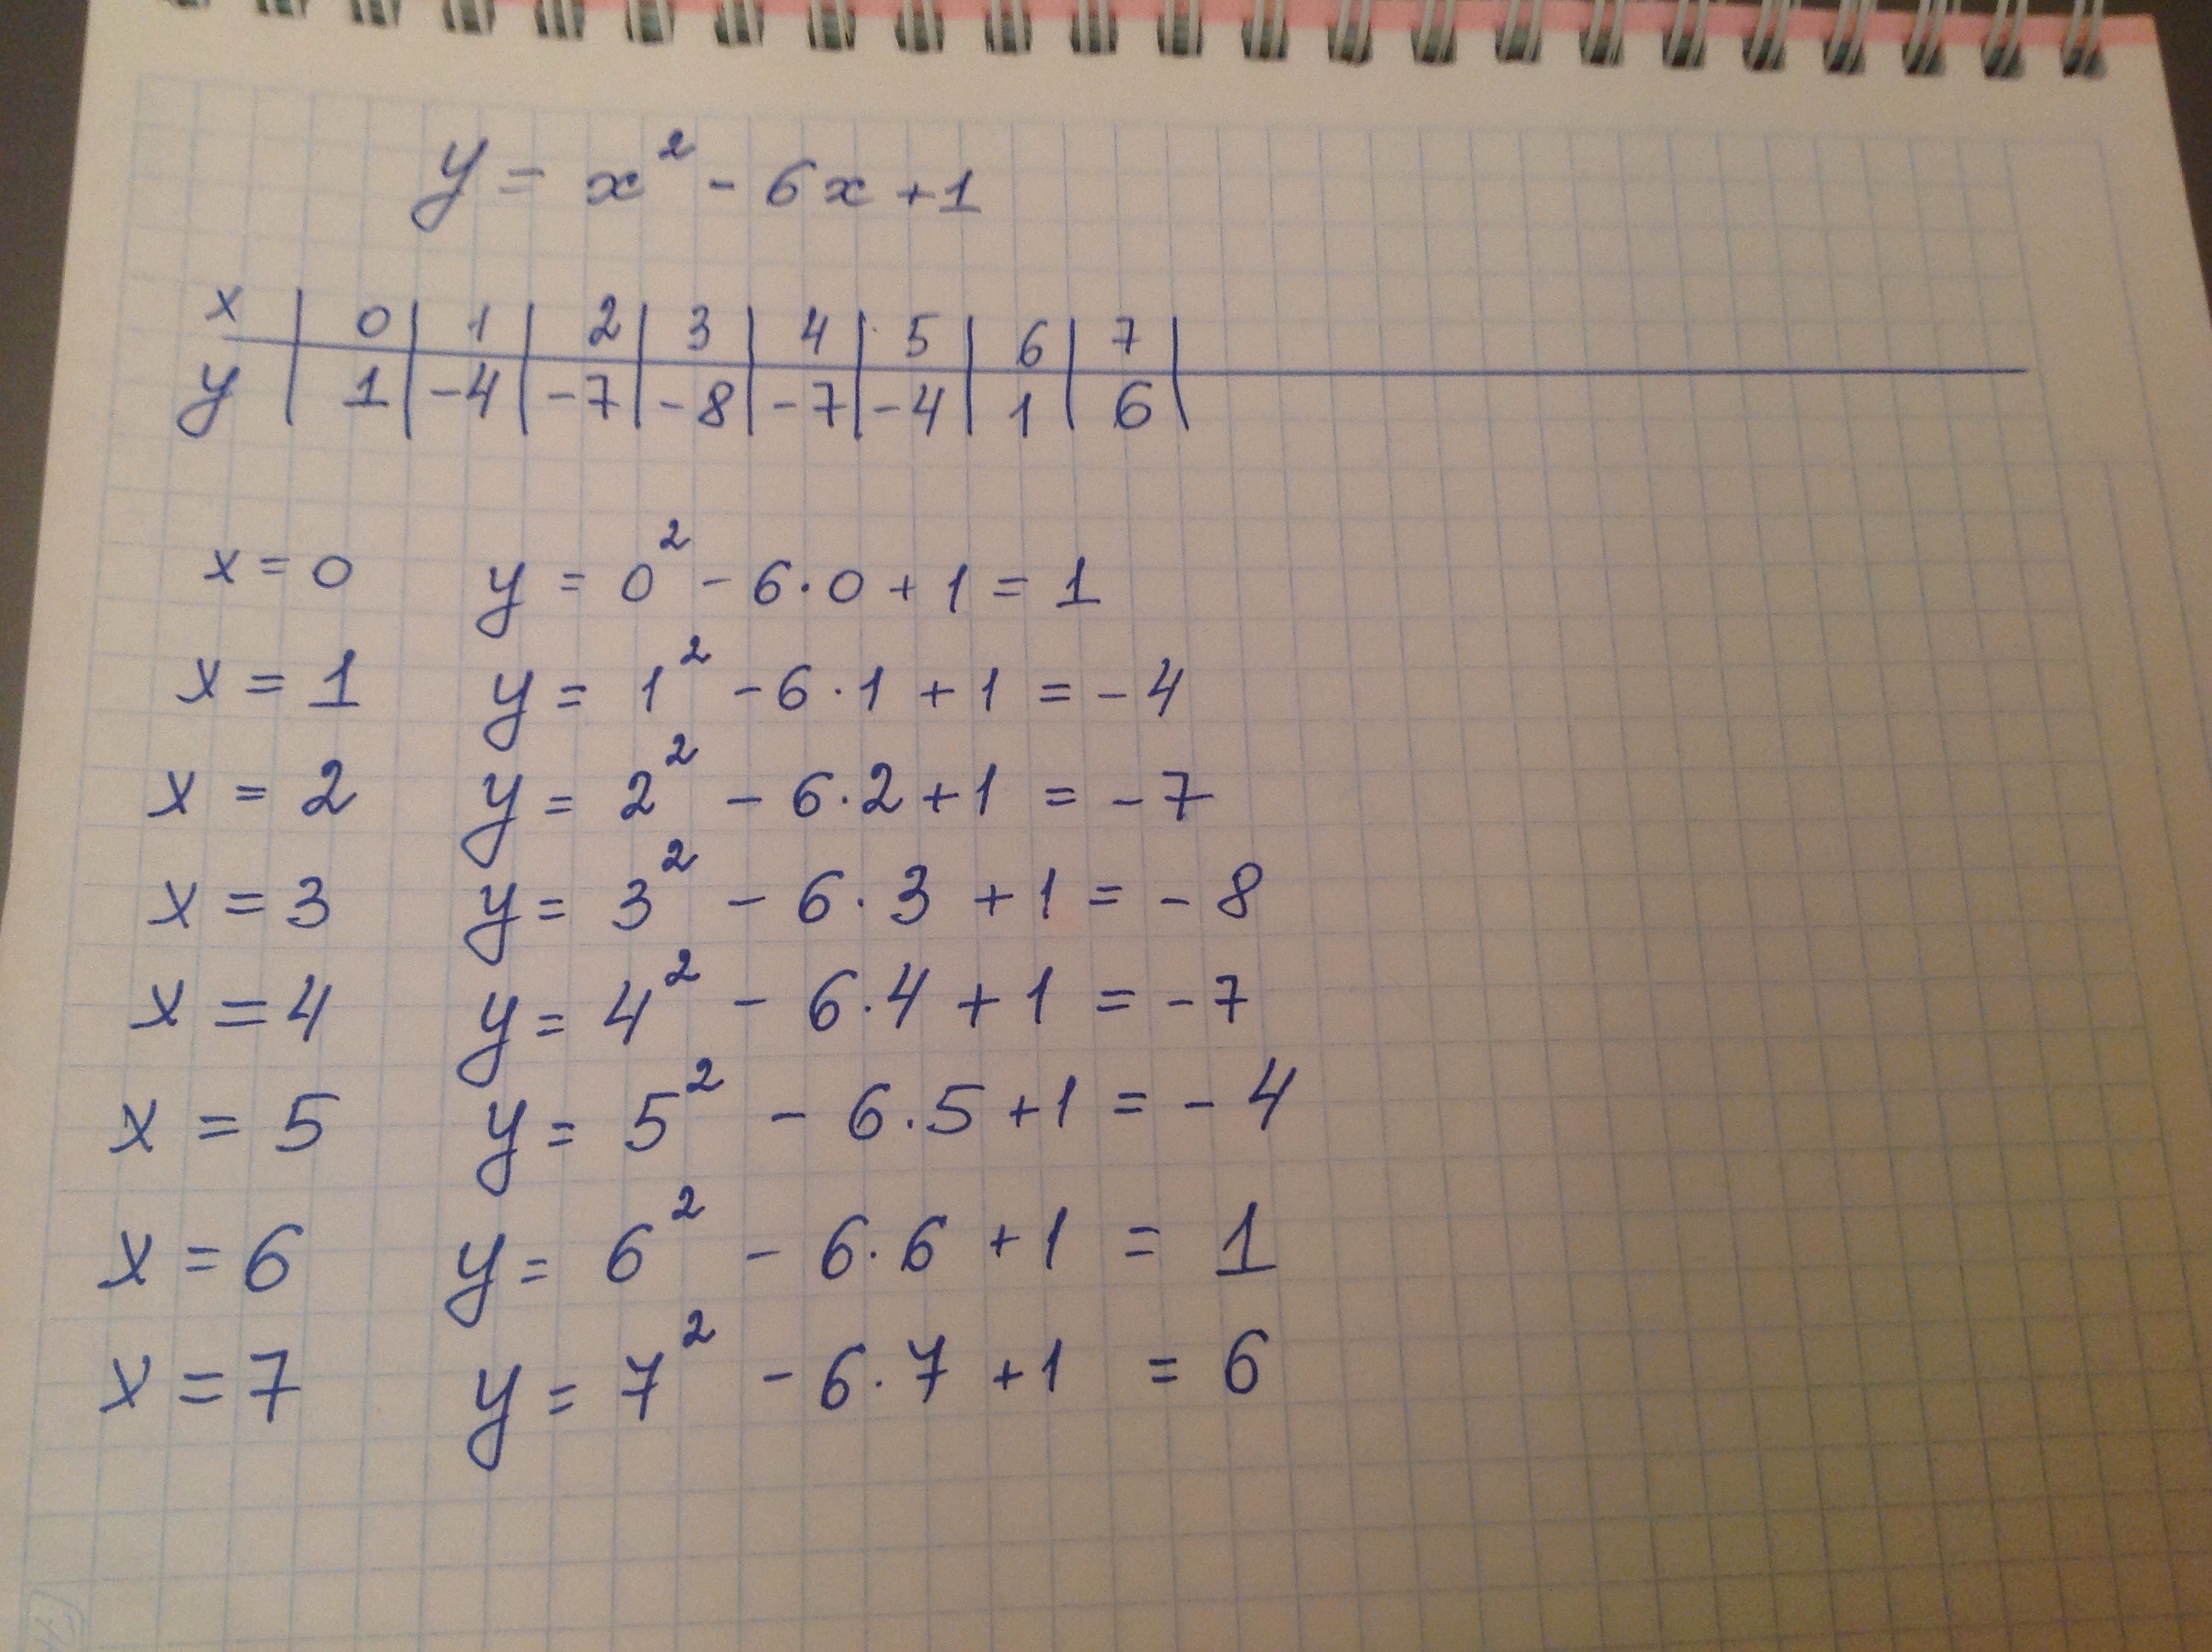 y = x² - 6x + 1
x | 0 | 1 | 2 | 3 | 4 | 5 | 6 | 7 |
y | 1 | -4 | -7 | -8 | -7 | -4 | 1 | 6 |
x = 0 y = 0² - 6·0 + 1 = 1
x = 1 y = 1² - 6·1 + 1 = -4
x = 2 y = 2² - 6·2 + 1 = -7
x = 3 y = 3² - 6·3 + 1 = -8
x = 4 y = 4² - 6·4 + 1 = -7
x = 5 y = 5² - 6·5 + 1 = -4
x = 6 y = 6² - 6·6 + 1 = 1
x = 7 y = 7² - 6·7 + 1 = 6